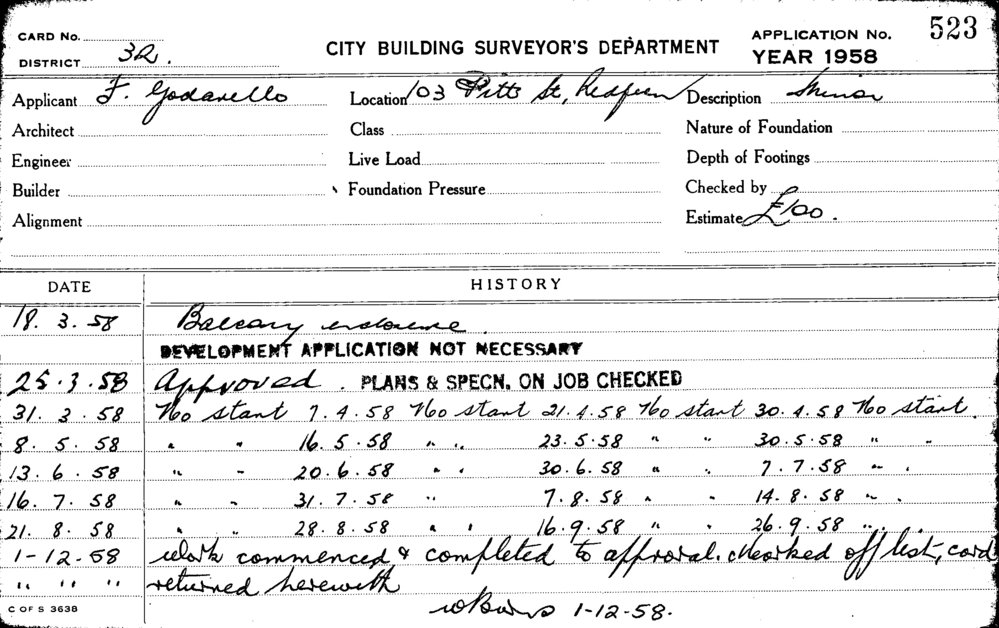 CARD No.
DISTRICT 32.
CITY BUILDING SURVEYOR'S DEPARTMENT
APPLICATION No. 523
YEAR 1958
Applicant F. Godarello Location 103 Pitt St, Redfern Description Minor
Architect Class Nature of Foundation
Engineer Live Load Depth of Footings
Builder Foundation Pressure Checked by
Alignment Estimate £100.
DATE HISTORY
18. 3. 58 Balcony enclosure.
DEVELOPMENT APPLICATION NOT NECESSARY
25.3.58 Approved. PLANS & SPECN. ON JOB CHECKED
31. 3. 58 No start 7.4.58 No start 21.4.58 No start 30.4.58 No start.
8. 5. 58 " " 16.5.58 " " 23.5.58 " " 30.5.58 " "
13. 6. 58 " " 20.6.58 " " 30.6.58 " " 7.7.58 " "
16. 7. 58 " " 31.7.58 " 7.8.58 " " 14.8.58 " "
21. 8. 58 " " 28.8.58 " " 16.9.58 " " 26.9.58 " "
1-12-58 Work commenced & completed to approval. Marked off list, card
" " " returned herewith
1-12-58.
C OF S 3638